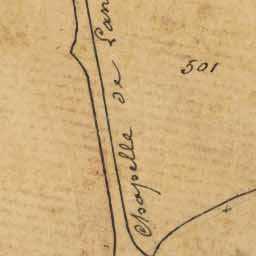 Chapelle de Lan
501